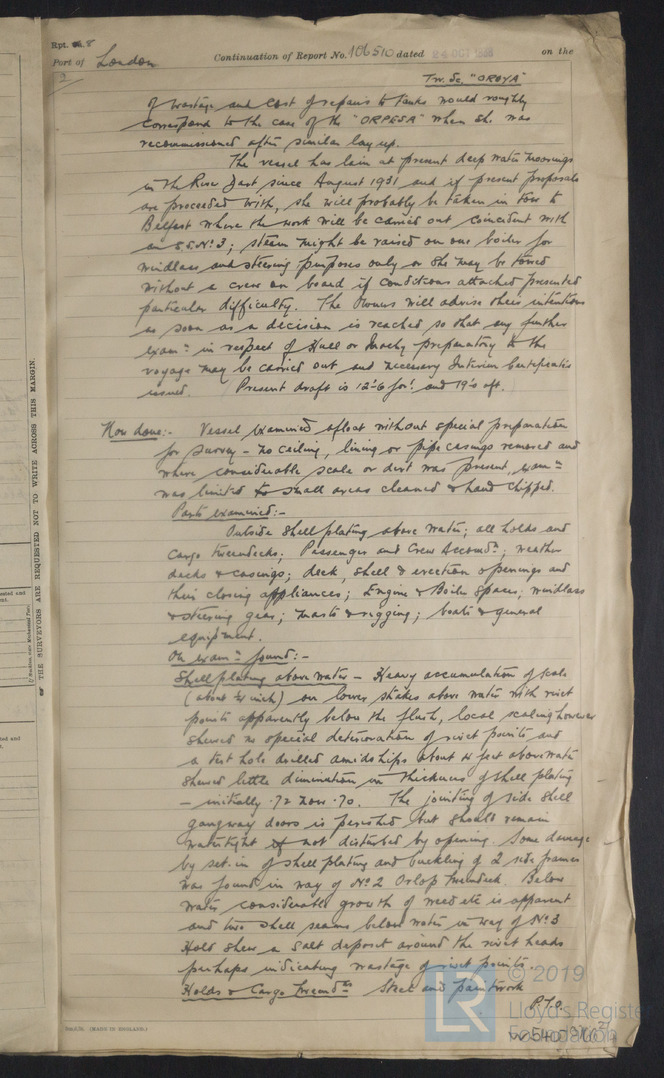 Rpt. 8
Port of London Continuation of Report No. 106510 dated 24 OCT 1938 on the
2
Tw. Sc. "OROYA"
of wastage and cost of repairs to tanks would roughly
correspond to the case of the "ORPESA" when she was
recommissioned after similar lay up.
The vessel has lain at present deep water moorings
in the River Dart since August 1931 and if present proposals
are proceeded with, she will probably be taken in tow to
Belfast where the work will be carried out coincident with
an S.S. No. 3; steam might be raised on one boiler for
windlass and steering purposes only or she may be towed
without a crew on board if conditions attached presented
particular difficulty. The Owners will advise their intentions
as soon as a decision is reached so that any further
exam:n in respect of Hull or Mach:y preparatory to the
voyage may be carried out and necessary Interim Certificates
issued. Present draft is 12'-6 for'd and 19'0 aft.
Now done:- Vessel examined afloat without special preparation
for survey - no ceiling, lining or pipe casings removed and
where considerable scale or dirt was present, exam:n
was limited to small areas cleaned & hand chipped.
Parts examined:-
Outside Shell plating above water; all holds and
cargo tweendecks. Passenger and Crew Accomd:n; weather
decks & casings; deck, shell & erection openings and
their closing appliances; Engine & Boiler Spaces; windlass
& steering gear; masts & rigging; boats & general
equipment.
On exam:n found:-
Shell plating above water - Heavy accumulation of scale
(about 1/4 inch) on lower strakes above water with rivet
points apparently below the flush, local scaling however
shewed no special deterioration of rivet points and
a test hole drilled amidships about 4 feet above water
shewed little diminution in thickness of shell plating
- initially .72 now .70. The jointing of side shell
gangway doors is perished but should remain
watertight if not disturbed by opening. Some damage
by set-in of shell plating and buckling of 2 side frames
was found in way of No. 2 Orlop tweendeck. Below
water considerable growth of weed etc is apparent
and two shell seams below water in way of No. 3
Hold shew a salt deposit around the rivet heads
perhaps indicating wastage of rivet points.
Holds & Cargo tweend:ks Steel and paintwork
P.T.O.
THE SURVEYORS ARE REQUESTED NOT TO WRITE ACROSS THIS MARGIN.
(MADE IN ENGLAND.)
LR © 2019
Lloyd's Register
Foundation